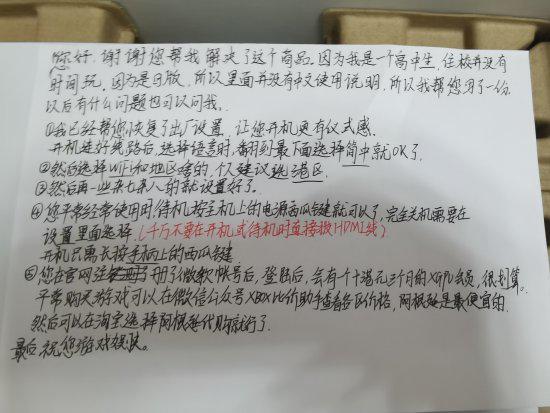 您好,谢谢您帮我解决了这个商品。因为我是一个高中生,住校并没有
时间玩。因为是日版,所以里面并没有中文使用说明,所以我帮您写了一份
以后有什么问题也可以问我。
①我已经帮您恢复了出厂设置,让您开机更有仪式感。
开机连好线路后,选择语言时,翻到最下面选择简中就OK了。
②然后选择WIFI和地区啥的,仅建议选港区。
③然后再一些来七来八的就设置好了。
④您平常经常使用时待机按主机上的电源西瓜键就可以了,完全关机需要在
设置里面选择。(千万不要在开机或待机时直接拔HDMI线)
开机只需长按手柄上的西瓜键
⑤您在官网注册了微软帐号后,登陆后,会有个十港元三个月的XGPU会员,很划算。
平常购买游戏可以在微信公众号XBOX比价助手查看各区价格,阿根廷是最便宜的。
然后可以在淘宝选择阿根廷代购就行了。
最后,祝您游戏愉快。